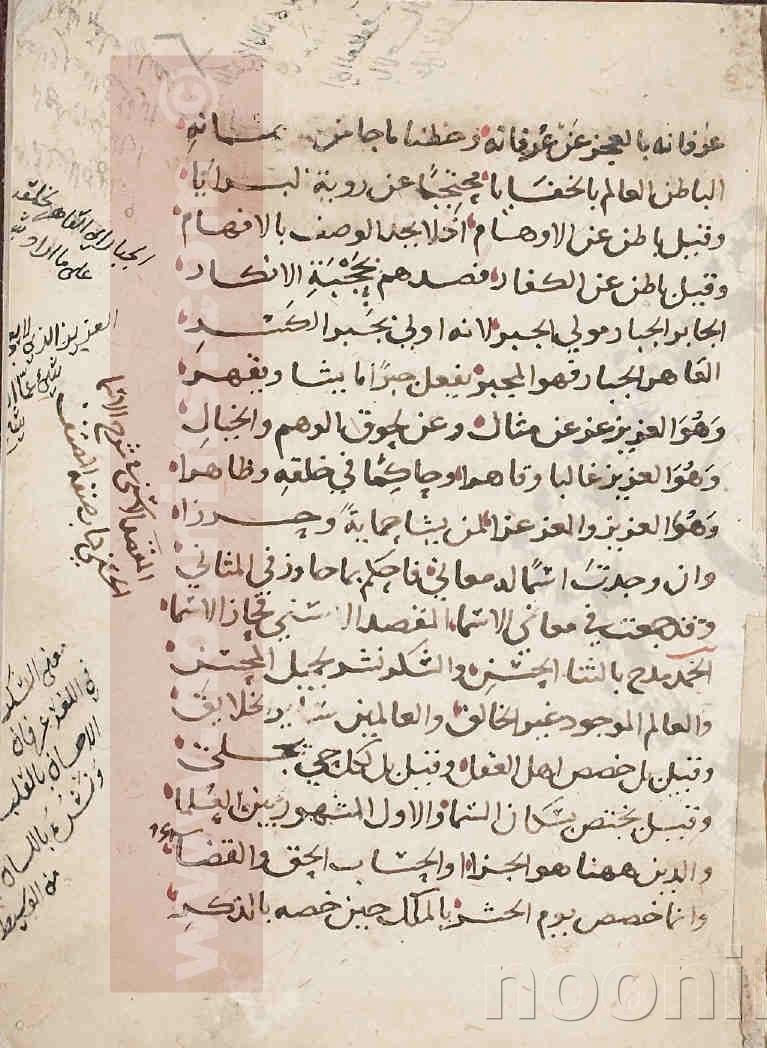 عرفانه بالعجز عن عرفانه وحظنا ما جا من
الباطن العالم بالخفايا محتجبا عن روية البرايا
وقيل باطن عن الاوهام اذ لا يحد الوصف بالافهام
وقيل باطن عن الكفار فصدهم بحجبة الانكار
الجابر الجبار مولي الجبر لانه اولى بجبر الكسر
القاهر الجبار فهو المجبر يفعل جبرا ما يشا ويقهر
وهو العزيز عز عن مثال وعن لحوق بالوهم والخيال
وهو العزيز غالبا وقاهرا وحاكما في خلقه وظاهرا
وهو العزيز والعز عزا لمن يشا حماية وحرزا
وان وجدت اسما له معاني فاحكم بما جاوز في المثاني
وقد جمعت في معاني الاسما المقصد الاسنى
الحمد مدح بالثنا الحسن والشكر نشر لجميل المحسن
والعالم الموجود غير الخالق والعالمين ساير الخلايق
وقيل بل خصص اهل العقل وقيل بل لكل حي
وقيل يختص بسكان السما والاول المشهور بين العلما
والدين ههنا هو الجزا والحساب الحق والقضا
وانما خصص يوم الحشر بالملك حين خصه بالذكر
الجبار الذي القاهر لخلقه
على ما اراد
العزيز الذي لا
المقصد الاسنى في شرح الاسما
الحسنى
معنى الشكر
في اللغة عرفان
الاحسان بالقلب
ونشره باللسان
من الوسيط
www.
©
nooni